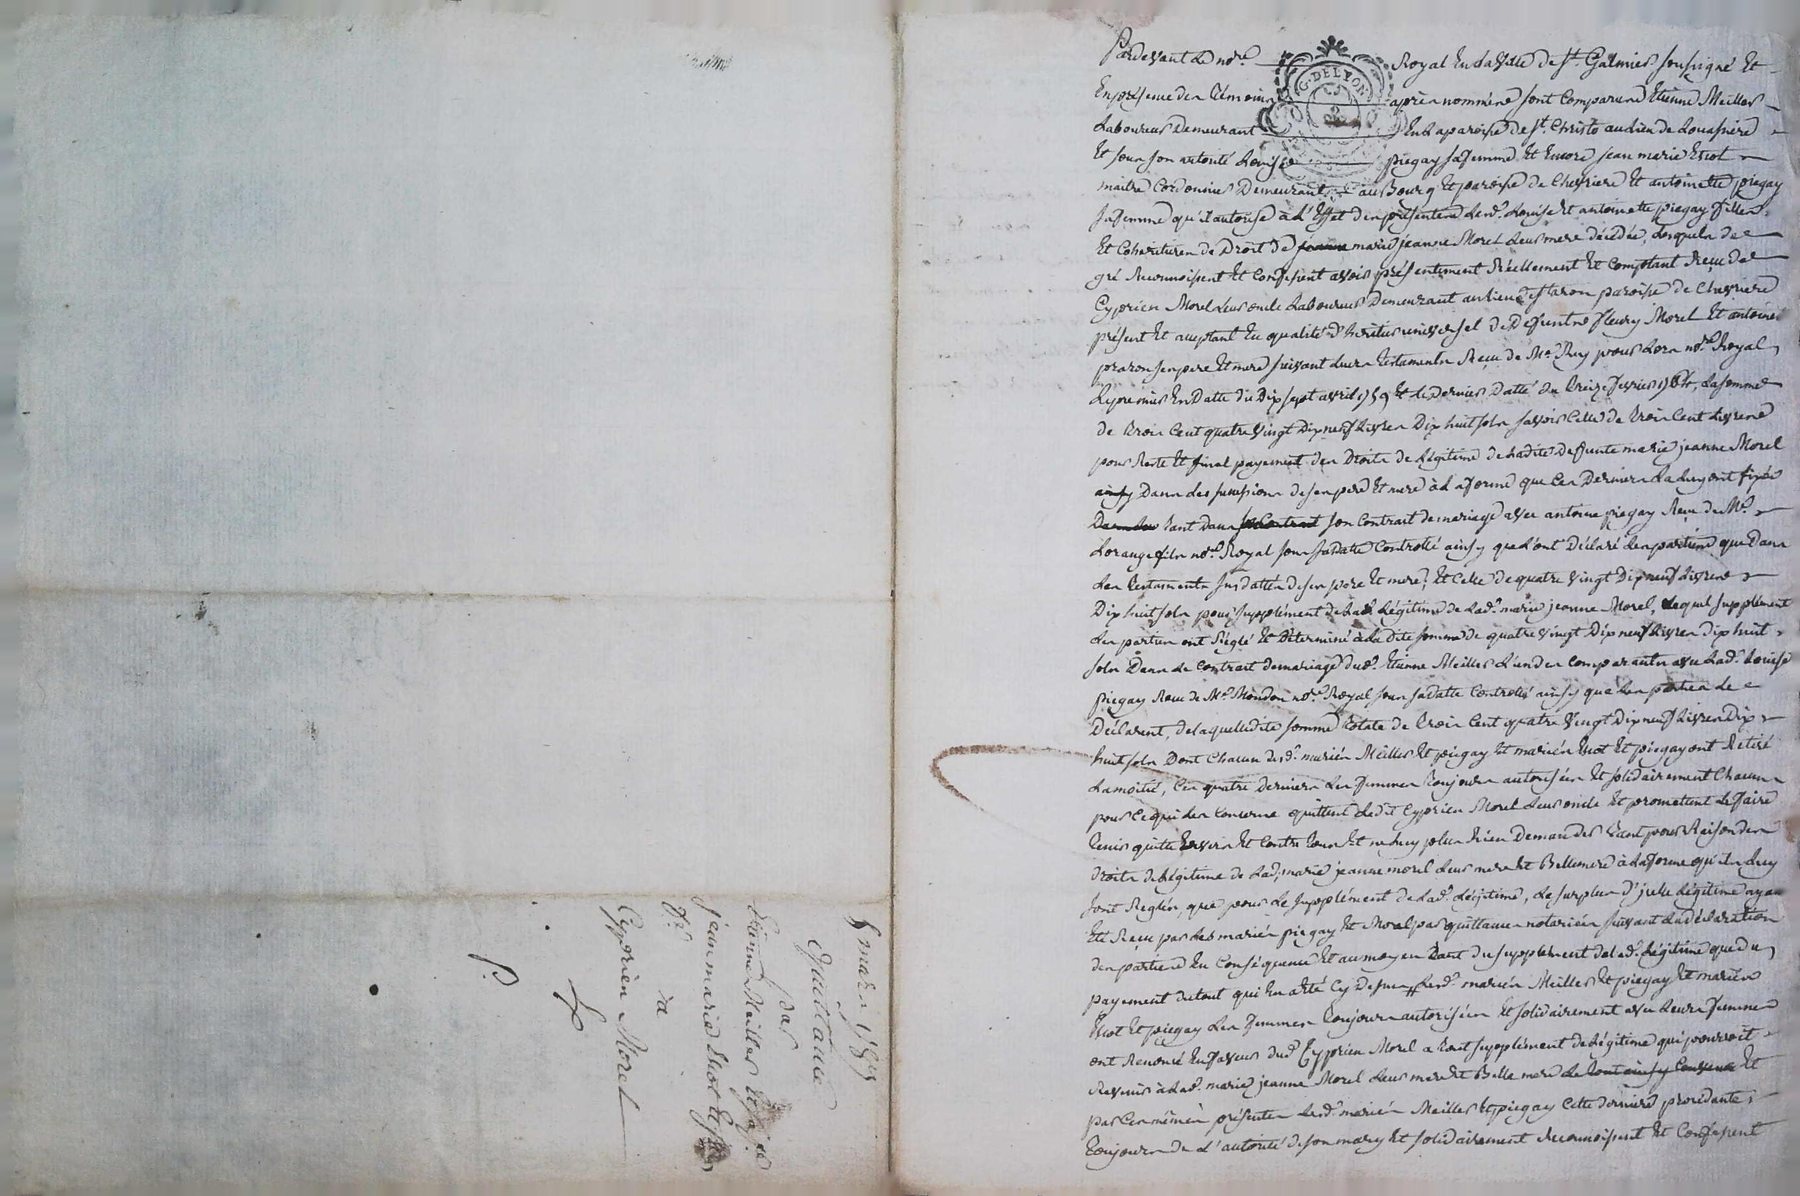 Pardevant le nore Royal en la ville de St. Galmier soussigné et
G. DE LYON
En présence des témoins après nommés sont comparus Etienne Meiller
Laboureur Demeurant En la paroisse de St. Christo au lieu de
Et sous son autorité Louise piegay sa femme Et Encore jean marie
maitre Cordonnier Demeurant au Bourg Et paroisse de Chevriere Et antoinette piegay
sa femme qu'il autorise à l'Effet des présentes Lesd. Louise Et antoinette piegay filles
Et Cohéritieres de Droit de marie jeanne Morel Leur mere décédée, Lesquels de
gré Reconnoissent Et Confessent avoir présentement Réellement Et Comptant Reçu de
Cyprien Morel Leur oncle Laboureur Demeurant au lieu paroisse de Chevriere
présent Et acceptant En qualité d'héritier universel de Deffunts fleury Morel Et antoinette
ses pere Et mere suivant Leurs testaments Reçu de Me. pour Lors nore. Royal
Le premier En Datte du Dix sept avril 1759 Et le Dernier Datté du treize fevrier La somme
de trois Cent quatre vingt Dix neuf Livres Dix huit sols savoir Celle de trois Cent Livres
pour Reste Et final payement des Droits de Légitime de Ladite Defunte marie jeanne Morel
Dans les successions de ses pere Et mere à La forme que Ces Derniers La luy ont fixée
tant Dans son Contrat de mariage avec antoine piegay Reçu de Me.
Lorange fils nore. Royal sous sa datte Controllé ainsy que L'ont Déclaré Les parties que Dans
Les testaments susdattés de ses pere Et mere, Et Celle de quatre vingt Dix neuf Livres
Dix huit sols pour supplément de La Légitime de Lad. marie jeanne Morel, Lequel supplément
Les parties ont Réglé Et Déterminé à La dite somme de quatre vingt Dix neuf Livres dix huit
sols Dans Le Contrat de mariage dud. Etienne Meiller L'un des Comparants avec Lad. Louise
piegay Reçu de Me. Mondon nore. Royal sous sa datte Controllé ainsy que Les parties Le
Déclarent, de laquelle dite somme totale de trois Cent quatre vingt Dix neuf Livres Dix
huit sols Dont Chacun desd. mariés Meiller Et piegay Et mariés Et piegay ont Retiré
La moitié, Ces quatre Derniers Les femmes toujours autorisées Et solidairement Chacun
pour Ce qui Les Concerne quittent Ledit Cyprien Morel Leur oncle Et promettent Le faire
tenir quitte Envers Et Contre tous Et ne luy plus Rien Demander tant pour Raison des
droits de Légitime de Lad. marie jeanne morel Leur mere Et Belle mere à La forme qu'ils luy
sont Reglés, que pour Le supplément de Lad. Légitime, Le surplus d'icelle Légitime ayant
Eté Reçu par Les mariés piegay Et Morel par quittances notariées suivant La déclaration
des parties En Conséquence Et au moyen tant du supplément de Lad. Légitime que du
payement du tout qui En a été Cy Dessus Lesd. mariés Meiller Et piegay Et mariés
Et piegay Les femmes toujours autorisées Et solidairement avec Leurs femmes
ont Renoncé En faveur dud. Cyprien Morel a tout supplément de Légitime qui pourroit
Revenir à Lad. marie jeanne Morel Leur mere Et Belle mere Le tout ainsy Convenu Et
par Ces mêmes présentes Lesd. mariés Meiller Et piegay Cette derniere procédante
toujours de L'autorité de son mary Et solidairement Reconnoissent Et Confessent
Quittance
par
Etienne Meiller Et
jean marie
à
Cyprien Morel